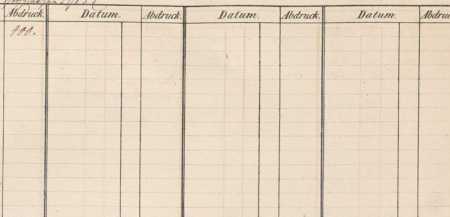 Abdruck. Datum. Abdruck. Datum. Abdruck. Datum. Abdru